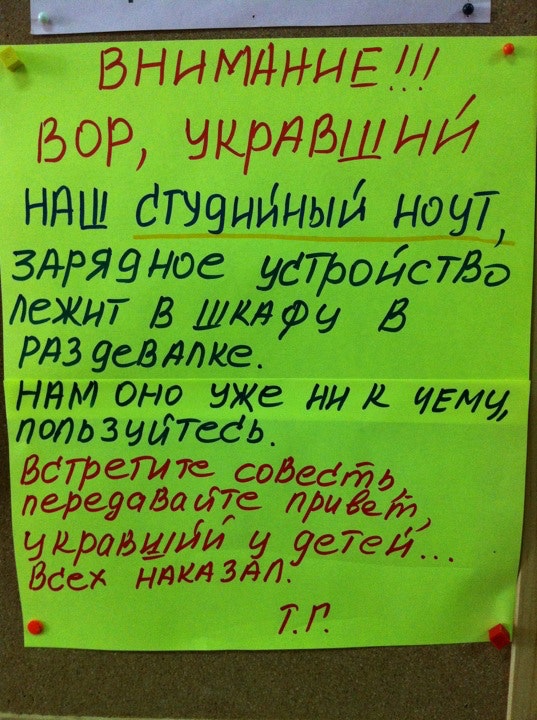 ВНИМАНИЕ!!!
ВОР, УКРАВШИЙ
НАШ СТУДИЙНЫЙ НОУТ,
ЗАРЯДНОЕ УСТРОЙСТВО
ЛЕЖИТ В ШКАФУ В
РАЗДЕВАЛКЕ.
НАМ ОНО УЖЕ НИ К ЧЕМУ,
ПОЛЬЗУЙТЕСЬ.
Встретите совесть,
передавайте привет,
укравший у детей...
Всех НАКАЗАЛ.
Т.Г.